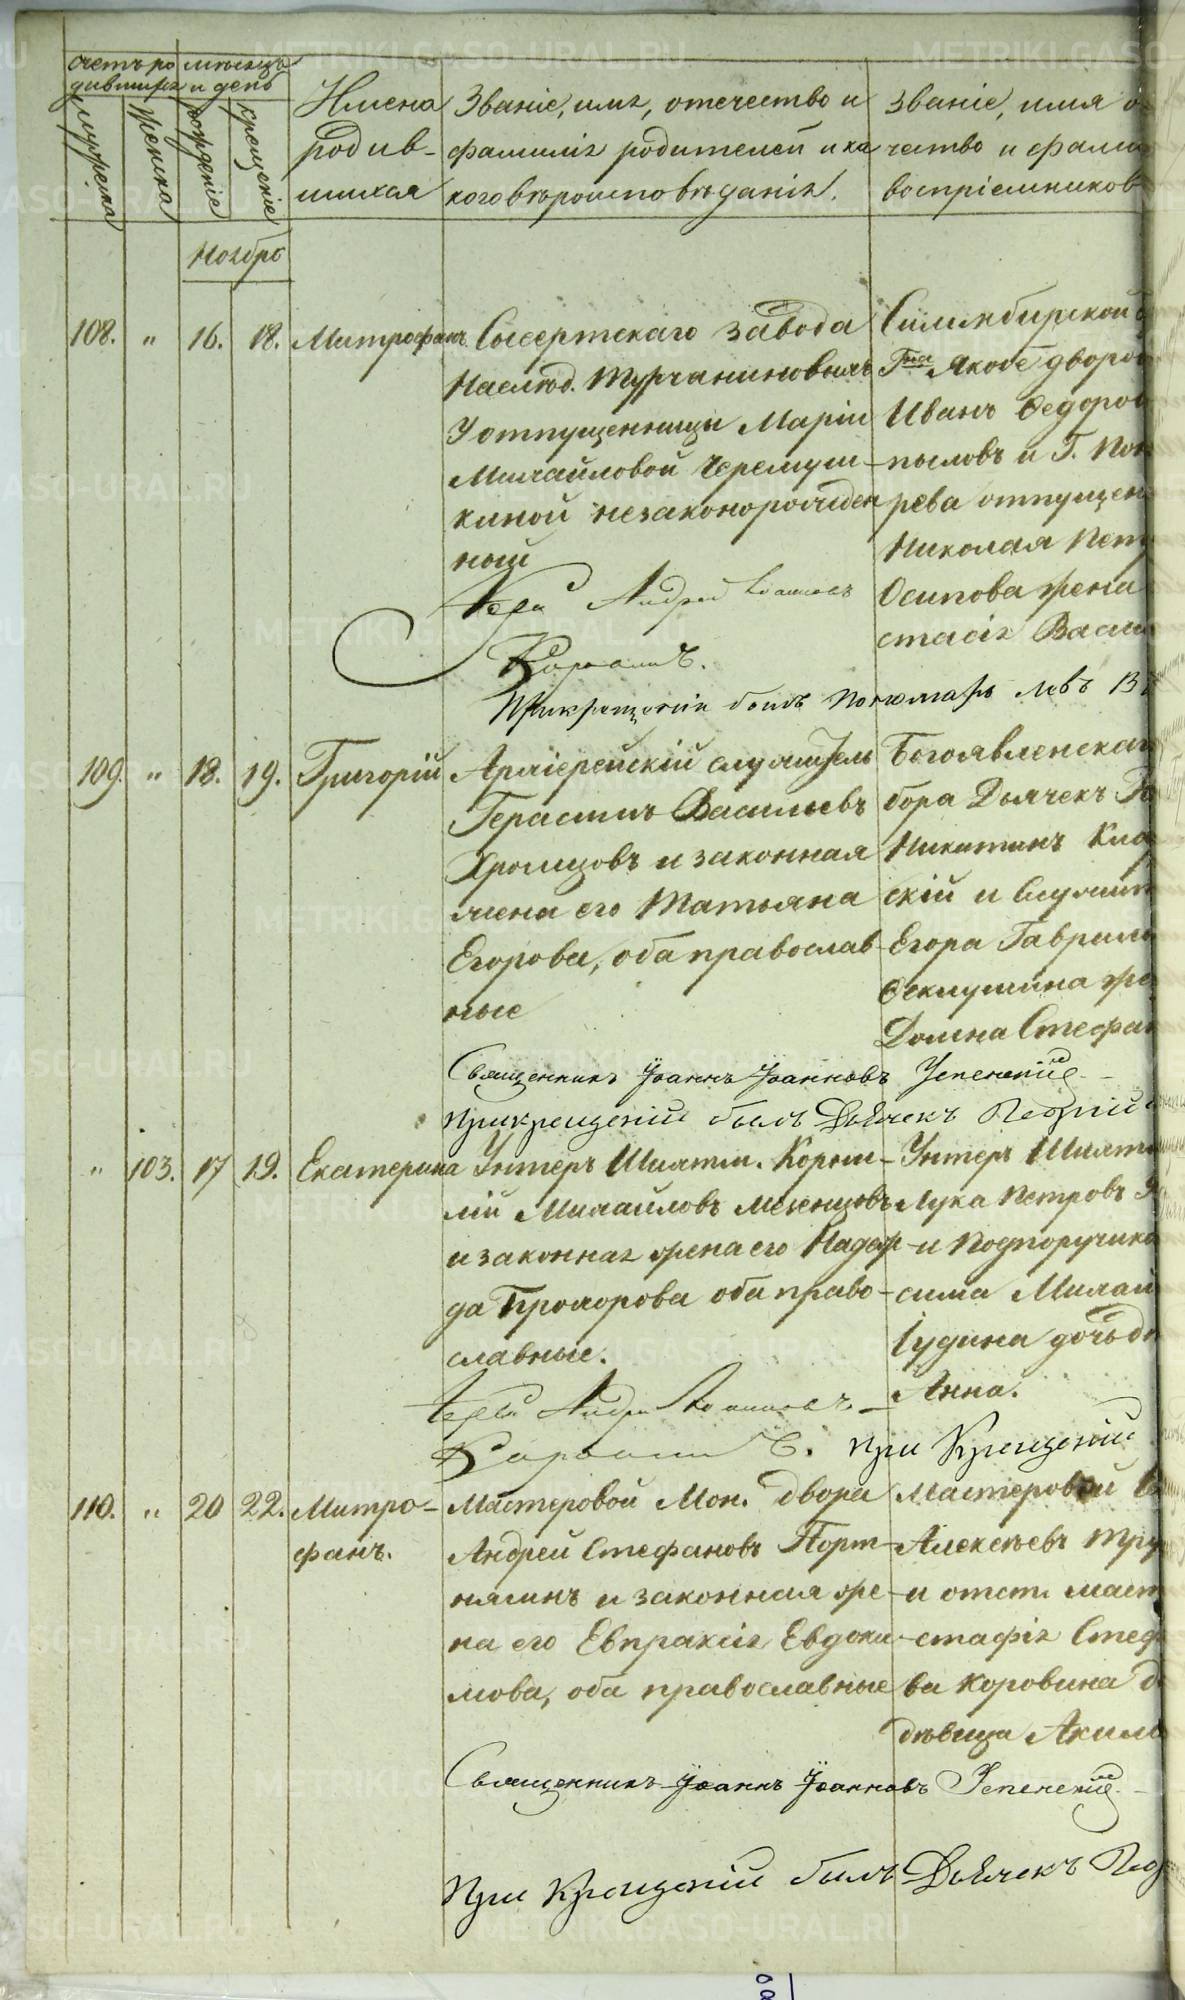 счетъ ро
дившихся
мѣсяцъ
и день
мужска
женска
рожденіе
крещеніе
Имена
родив-
шихся
Званіе, имя, отечество и
фамилія родителей и ка
кого вѣроисповѣданія.
Званіе, имя о
чество и фами
воспріемников
Ноябрь
108. " 16. 18. Митрофанъ
Сысертскаго завода
Наслѣд. Турчаниновыхъ
у отпущенницы Маріи
Михайловой Черемуш-
киной незаконорожден
ный
Симбирской
Гна Якоби дворов
Иванъ Федоров
пыловъ и Г.
рева отпущен
Николая Пет
Осипова жена
стасія Васи
Іерей Андрей
При крещеніи былъ Пономарь Левъ
109. " 18. 19. Григорій
Архіерейскій служитель
Герасимъ Васильевъ
Хромцовъ и законная
жена его Татьяна
Егорова, оба православ
ные
Богоявленскаг
бора Дьячекъ
Никитинъ
скій и Служит
Егора Гаврило
Феклушина же
Домна Стефан
Священникъ Іоаннъ Іоанновъ Успенскій
При крещеніи былъ Дьячекъ Георгій
" 103. 17 19. Екатерина
Унтеръ Шихтм. Корни-
лій Михайловъ
и законная жена его Надеж
да Прохорова оба право-
славные.
Унтеръ Шихтм
Лука Петровъ
и Подпоручика
сима Михай
Іудина дочь дѣ
Анна.
Іерей Андрей
При Крещеніи
110. " 20 22. Митро-
фанъ.
Мастеровой Мон. двора
Андрей Стефановъ Порт-
нягинъ и законная же-
на его Евпраксія Евдоки-
мова, оба православные
Мастеровой
Алексѣевъ
и отст. маст
стафія Стеф
ва Коровина д
дѣвица Акили
Священникъ Іоаннъ Іоанновъ Успенскій
При Крещеніи былъ Дьячекъ Гео
METRIKI.GASO-URAL.RU